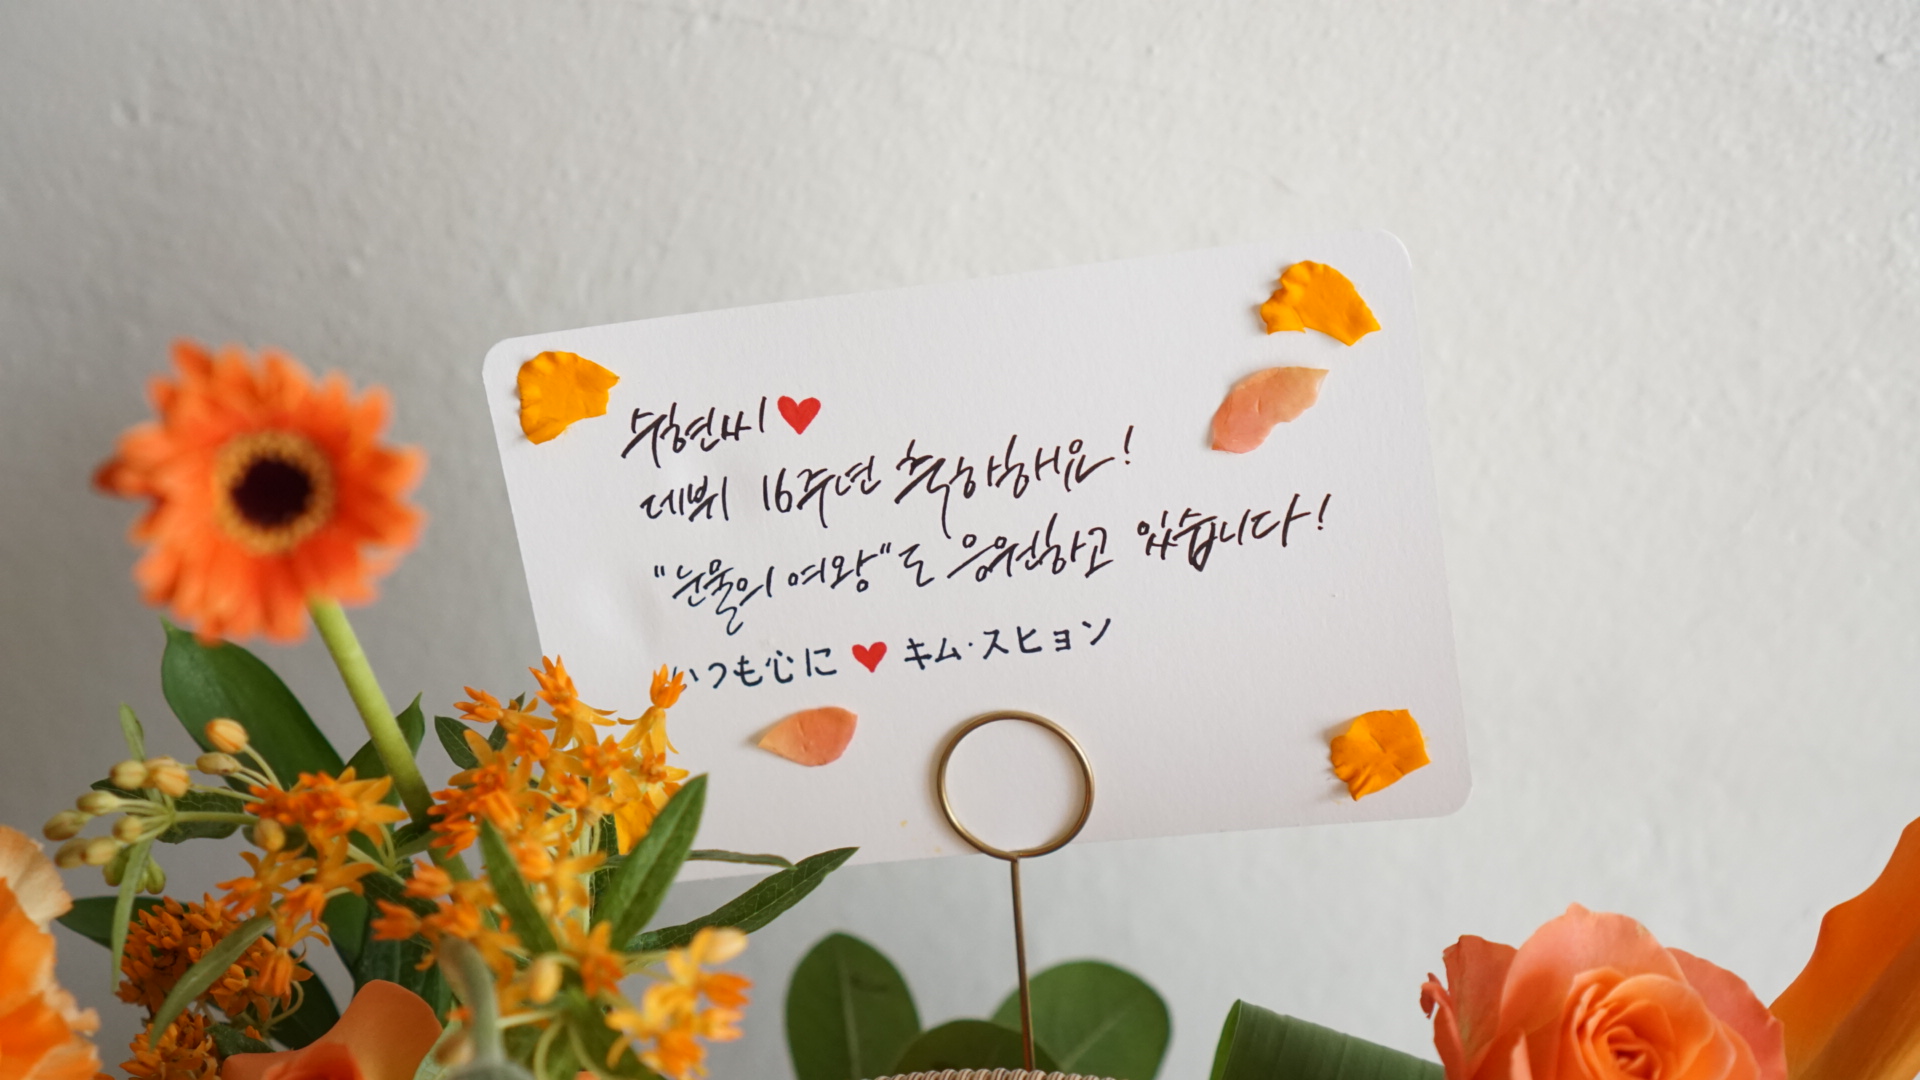 수현씨♥
데뷔 16주년 축하해요!
"눈물의 여왕"도 응원하고 있습니다!
いつも心に♥キム·スヒョン